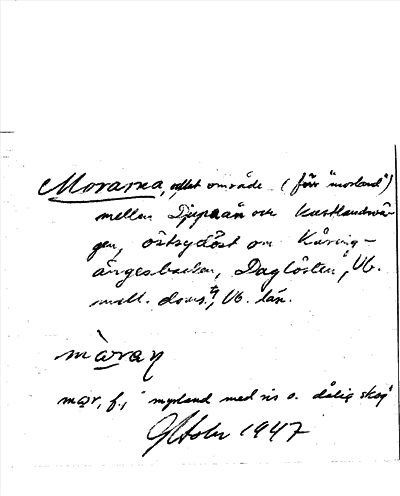 Morarna, odlat område (förr "morland")
mellan Djupaån och kustlandsvä-
gen, östsydöst om Kåring-
ängesbacken, Daglösten, Vb.
mell. doms., Vb. län.
màran
mar, f., "myrland med ris o. dålig skog"
1947